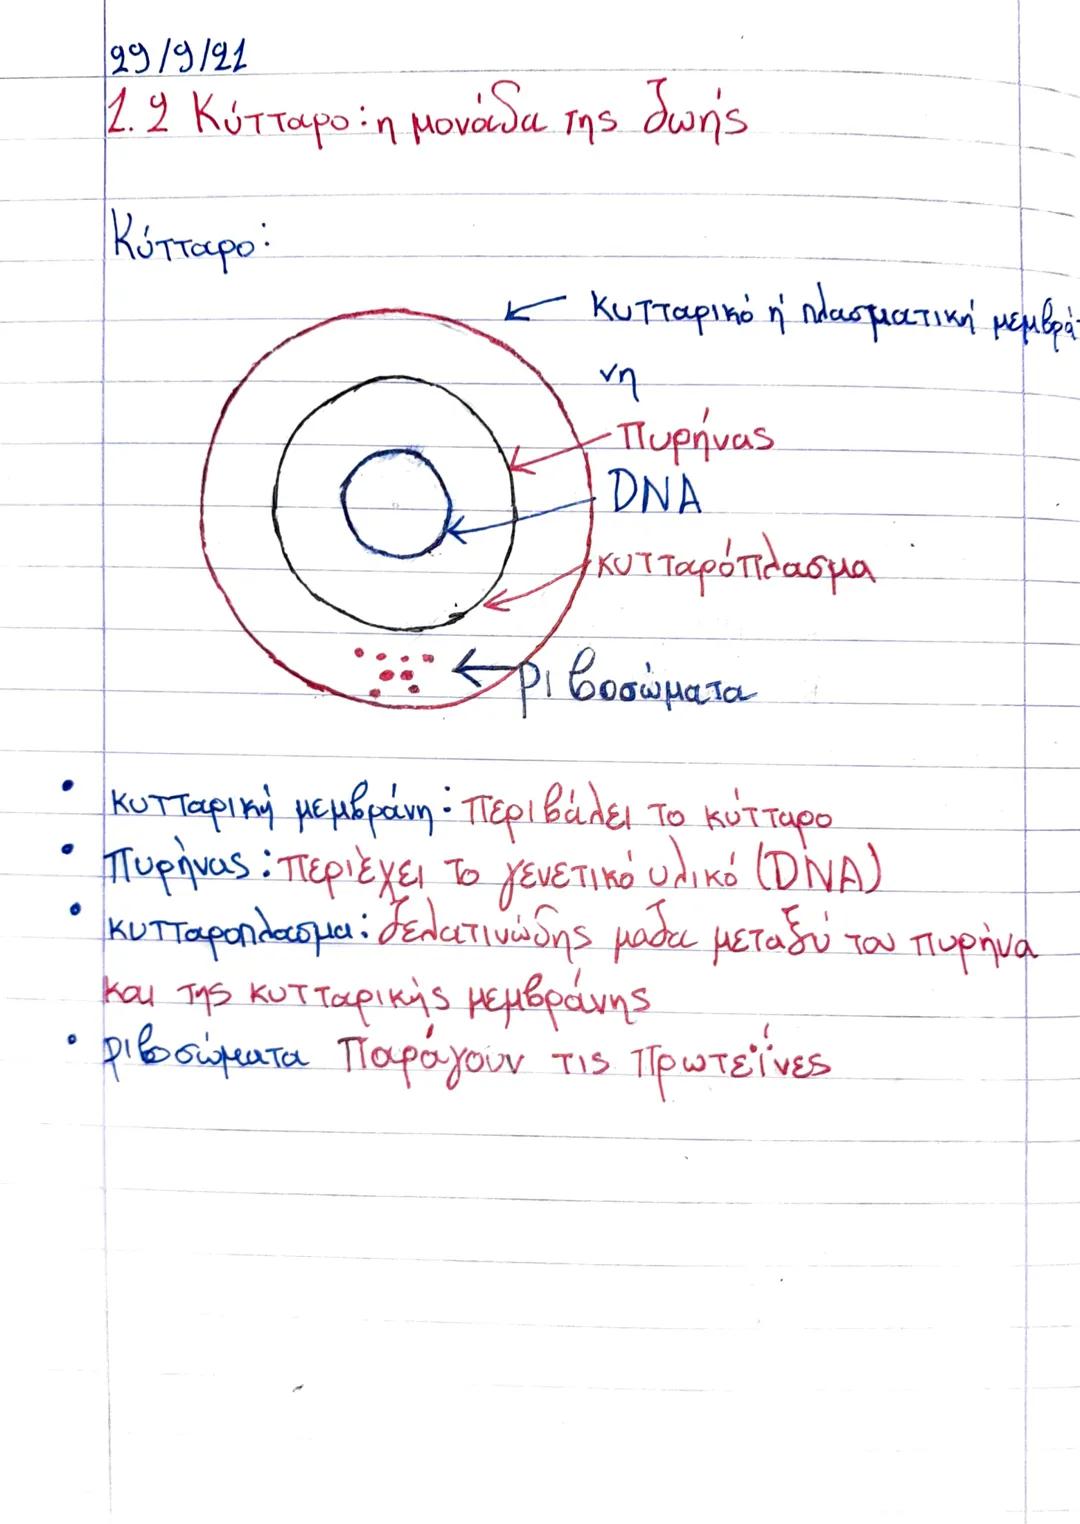 29/9/21
1.2 Κύτταρο: η μονάδα της ζωής
Κύτταρο:
Κυτταρικό ή πλασματική μεμβρά-
νη
Πυρήνας
DNA
κυτταρόπλασμα
ριβοσώματα
• κυτταρική μεμβράνη: περιβάλει το κύτταρο
• Πυρήνας: περιέχει το γενετικό υλικό (DNA)
• κυτταροπλασμα: ζελατινώδης μαζα μεταξύ του πυρήνα
και της κυτταρικής μεμβράνης
• ριβοσώματα Παράγουν τις πρωτεΐνες